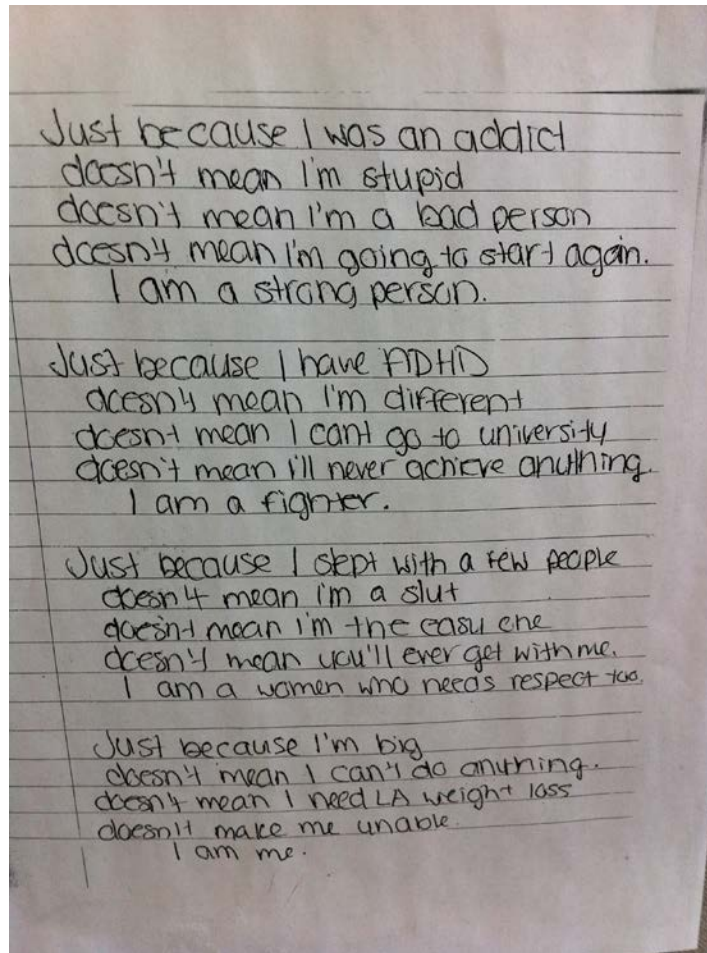 Just because I was an addict
doesn't mean I'm stupid
doesn't mean I'm a bad person
doesn't mean I'm going to start again.
I am a strong person.
Just because I have ADHD
doesn't mean I'm different
doesn't mean I can't go to university
doesn't mean i'll never achieve anything.
I am a fighter.
Just because I slept with a few people
doesn't mean i'm a slut
doesn't mean i'm the easy one
doesn't mean you'll ever get with me.
I am a women who needs respect too.
Just because I'm big
doesn't mean I can't do anything.
doesn't mean I need LA weight loss
doesn't make me unable.
I am me.